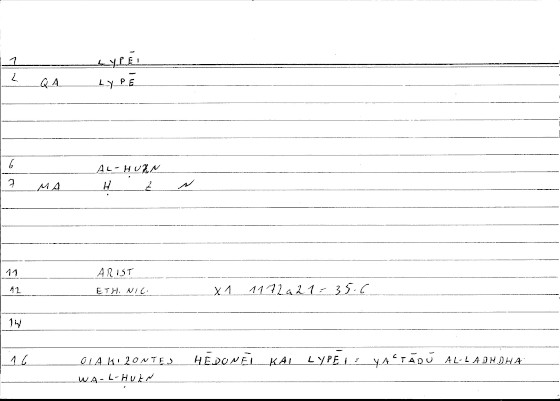 1 LYPĒI
2 QA LYPĒ
6 AL-ḤUZN
7 MA Ḥ Z N
11 ARIST
12 ETH. NIC. X1 1172a21 = 35.6
14
16 OIAKIZONTES HĒDONĒI KAI LYPĒI = YAʿTĀDŪ AL-LADHDHA
WA-L-ḤUZN